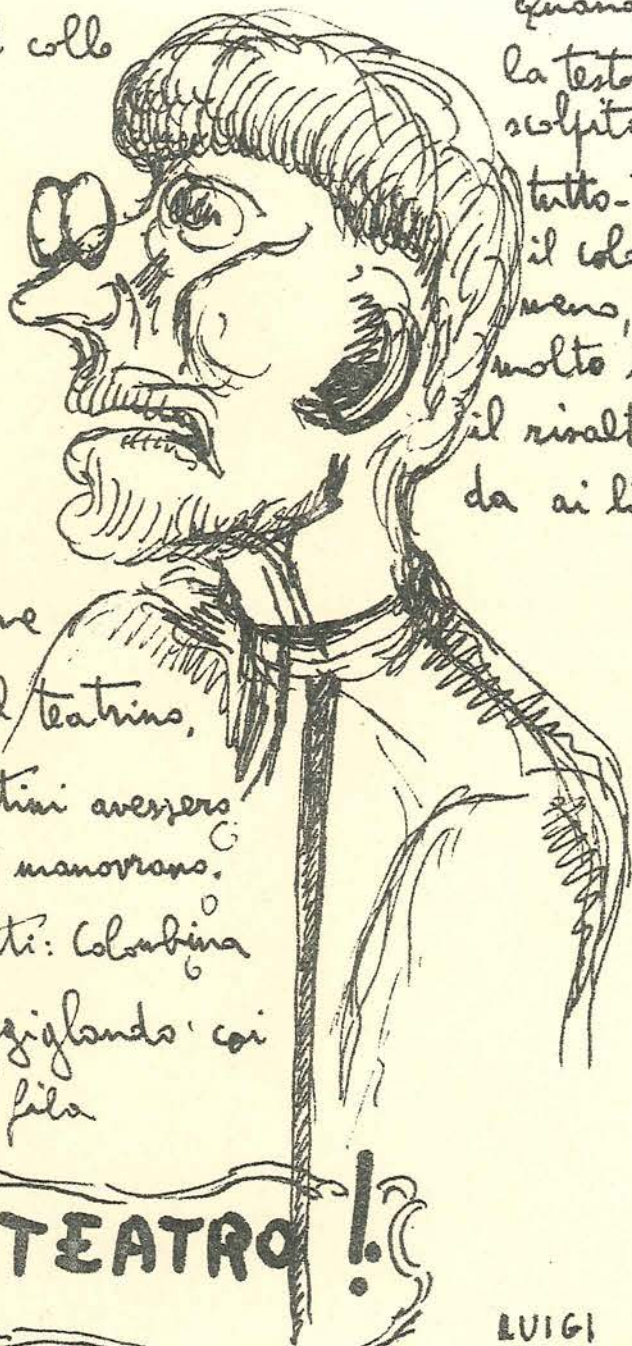 colle
quand
la testa
scolpita
tutto-
il col
meno,
molto
il risalt
da ai l
teatrino,
tini avessero
manovrano.
ti: Colombina
ziglando coi
fila
TEATRO!
LUIGI